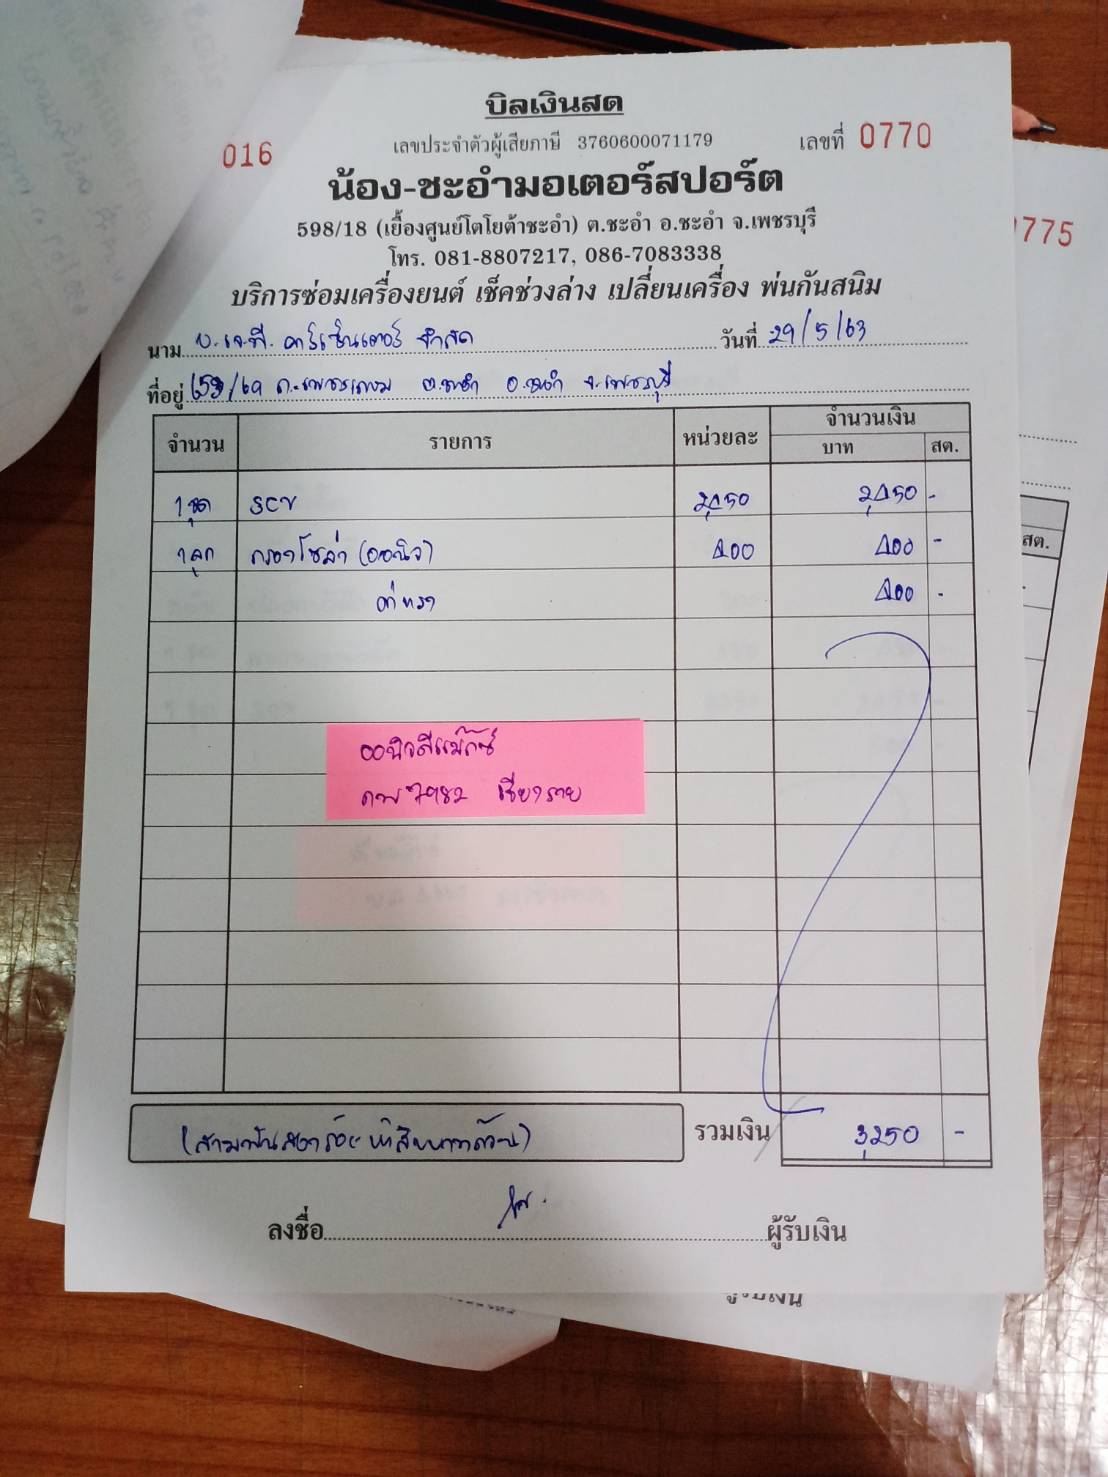 บิลเงินสด
เลขประจำตัวผู้เสียภาษี 3760600071179
016
เลขที่ 0770
น้อง-ชะอำมอเตอร์สปอร์ต
598/18 (เยื้องศูนย์โตโยต้าชะอำ) ต.ชะอำ อ.ชะอำ จ.เพชรบุรี
โทร. 081-8807217, 086-7083338
บริการซ่อมเครื่องยนต์ เช็คช่วงล่าง เปลี่ยนเครื่อง พ่นกันสนิม
นาม บ. เจ.พี. คาร์เซ็นเตอร์ จำกัด วันที่ 29/5/63
ที่อยู่ ถ.เพชรเกษม ต.ชะอำ อ.ชะอำ จ.เพชรบุรี
จำนวน รายการ หน่วยละ จำนวนเงิน
บาท สต.
1 ชุด SCV 2,450 2,450 -
1 ลูก กรองโซล่า (ออนิว) 400 400 -
ค่าแรง 400 -
ออนิวดีแม็กซ์
7982 เชียงราย
(สามพันสองร้อยห้าสิบบาทถ้วน) รวมเงิน 3,250 -
ลงชื่อ ผู้รับเงิน
775
สต.
ผู้รับเงิน